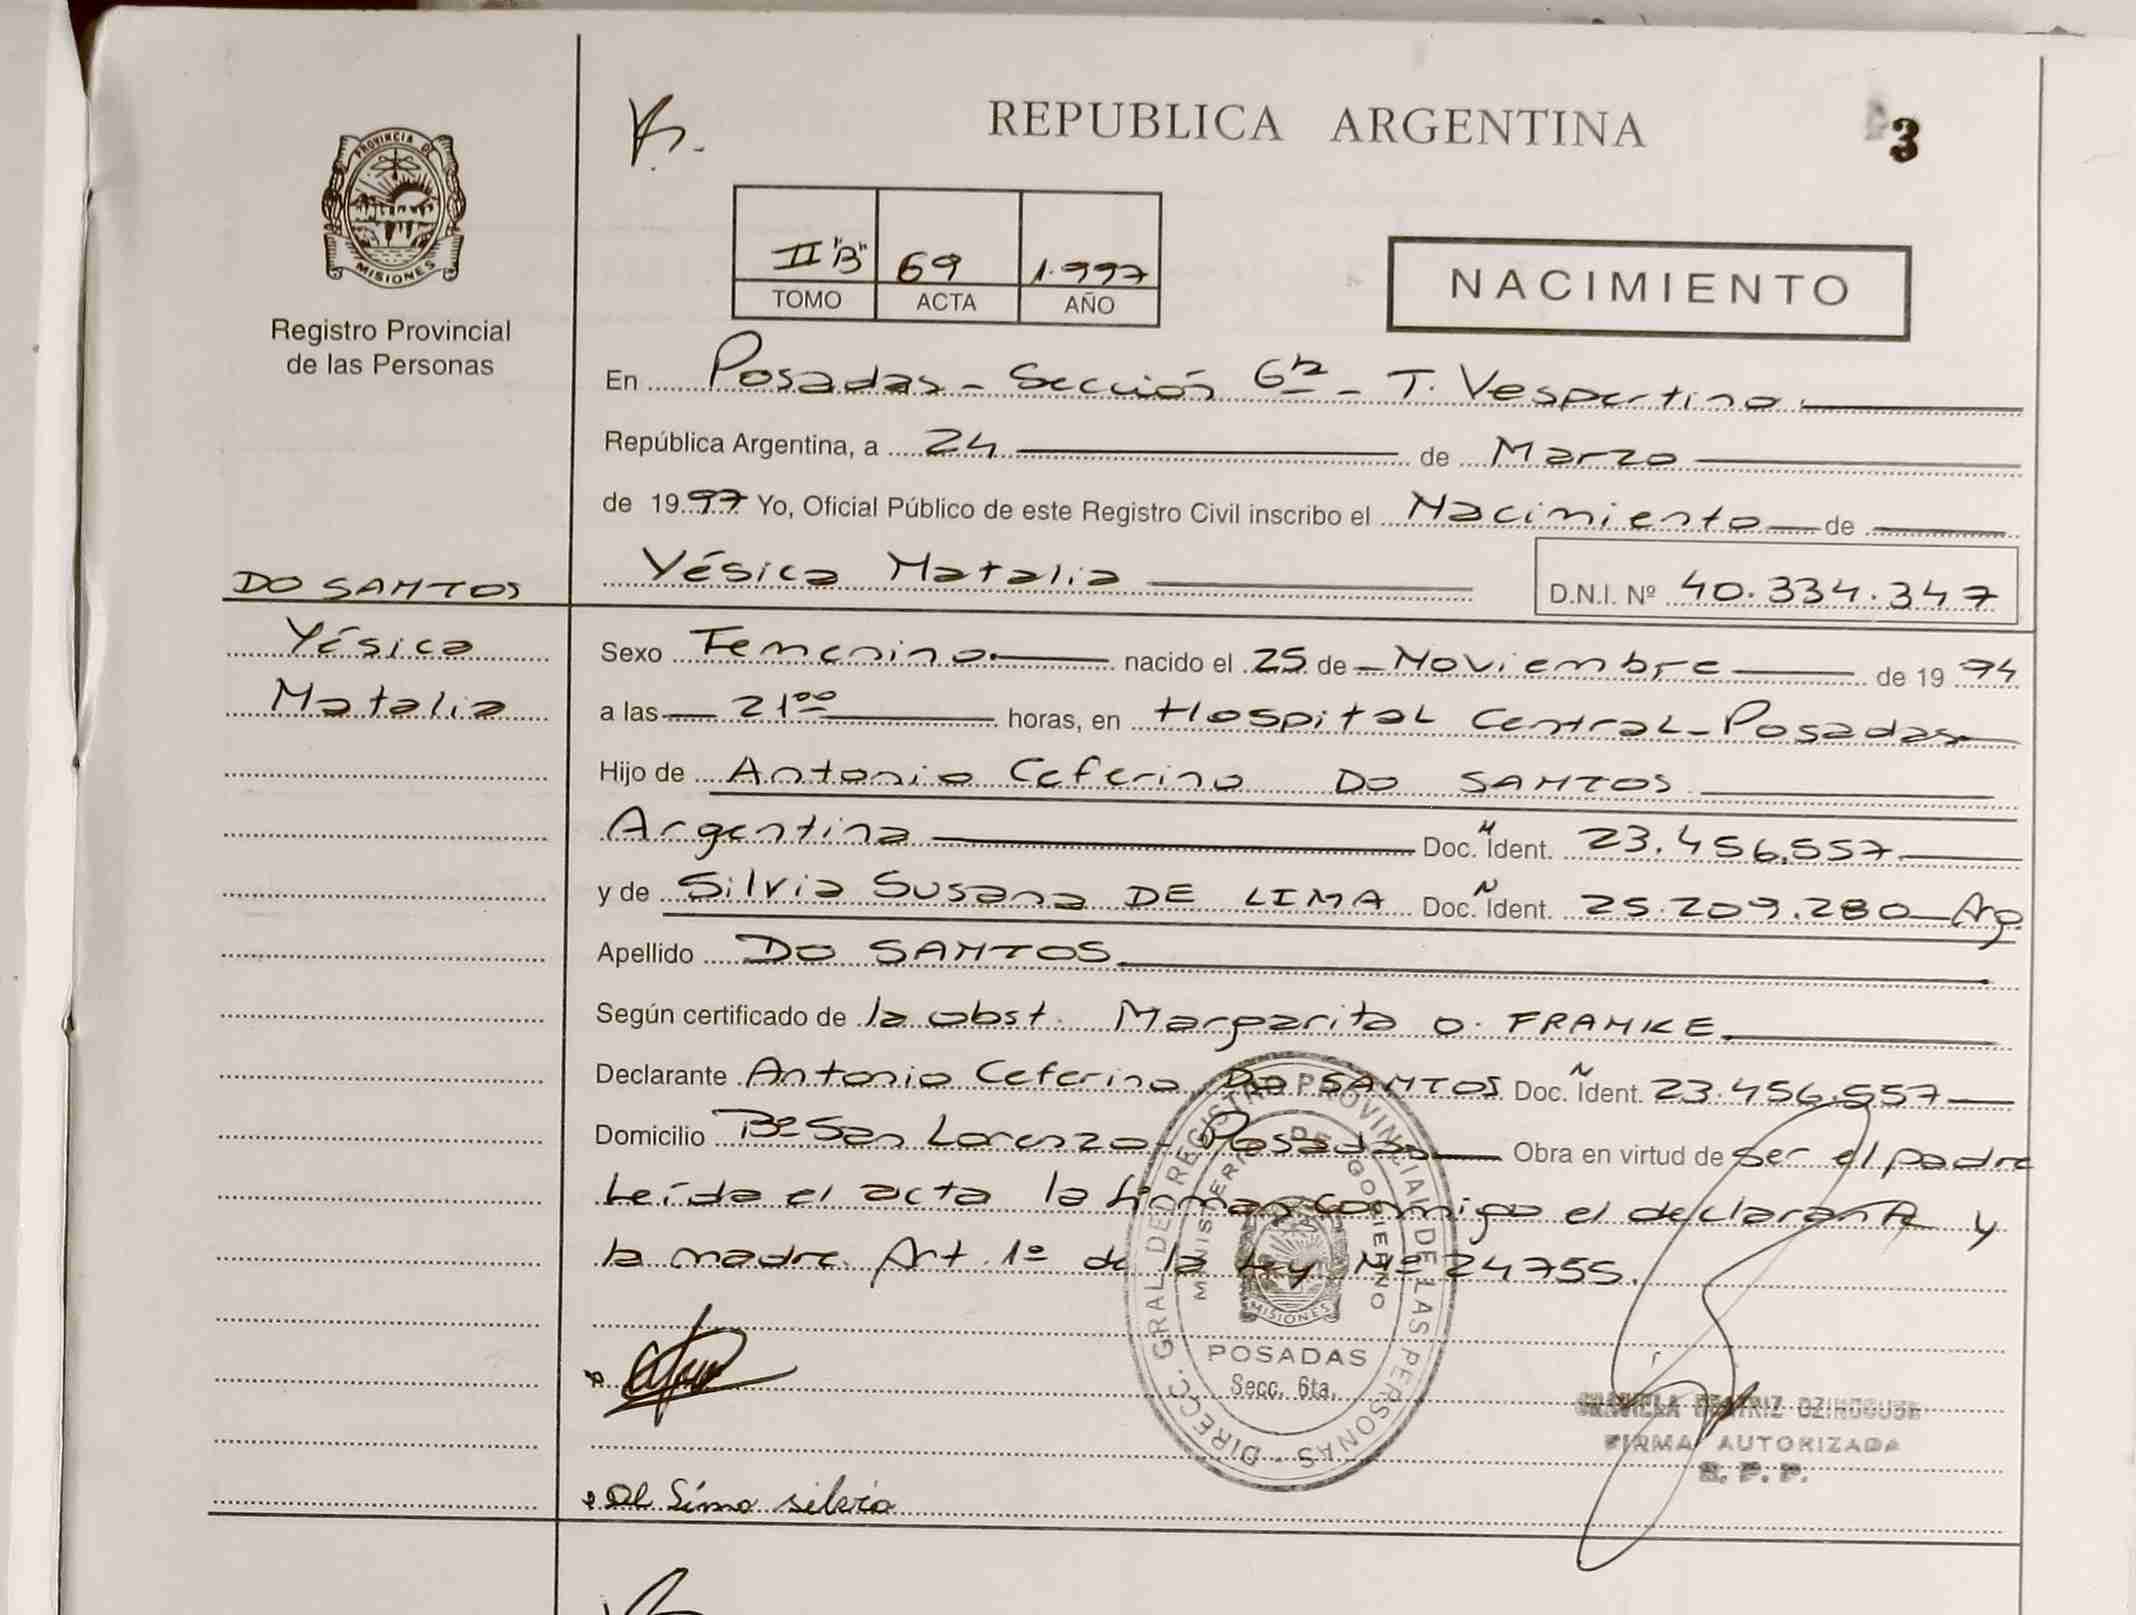 REPUBLICA ARGENTINA
3
PROVINCIA DE
MISIONES
Registro Provincial
de las Personas
II "B" 69 1.997
TOMO ACTA AÑO
NACIMIENTO
En Posadas - Sección 6ta - T. Vespertino
República Argentina, a 24 de Marzo
de 1997 Yo, Oficial Público de este Registro Civil inscribo el Nacimiento de
Yésica Natalia D.N.I. Nº 40.334.347
DO SANTOS
Yésica
Natalia
Sexo Femenino nacido el 25 de Noviembre de 1994
a las 21 00 horas, en Hospital Central - Posadas
Hijo de Antonio Ceferino DO SANTOS
Argentina Doc. N Ident. 23.456.557
y de Silvia Susana DE LIMA Doc. N Ident. 25.209.280 Arg.
Apellido DO SANTOS
Según certificado de la obst. Margarita O. FRANKE
Declarante Antonio Ceferino DO SANTOS Doc. N Ident. 23.456.557
Domicilio Bº San Lorenzo - Posadas Obra en virtud de ser el padre
Leída el acta la firman conmigo el declarante y
la madre. Art. 1º de la Ley Nº 24755.
DIRECC. GRAL DEL REGISTRO PROVINCIAL DE LAS PERSONAS
MINISTERIO DE GOBIERNO
MISIONES
POSADAS
Secc. 6ta.
GRACIELA BEATRIZ
FIRMA AUTORIZADA
R. P. P.
De Lima silvia